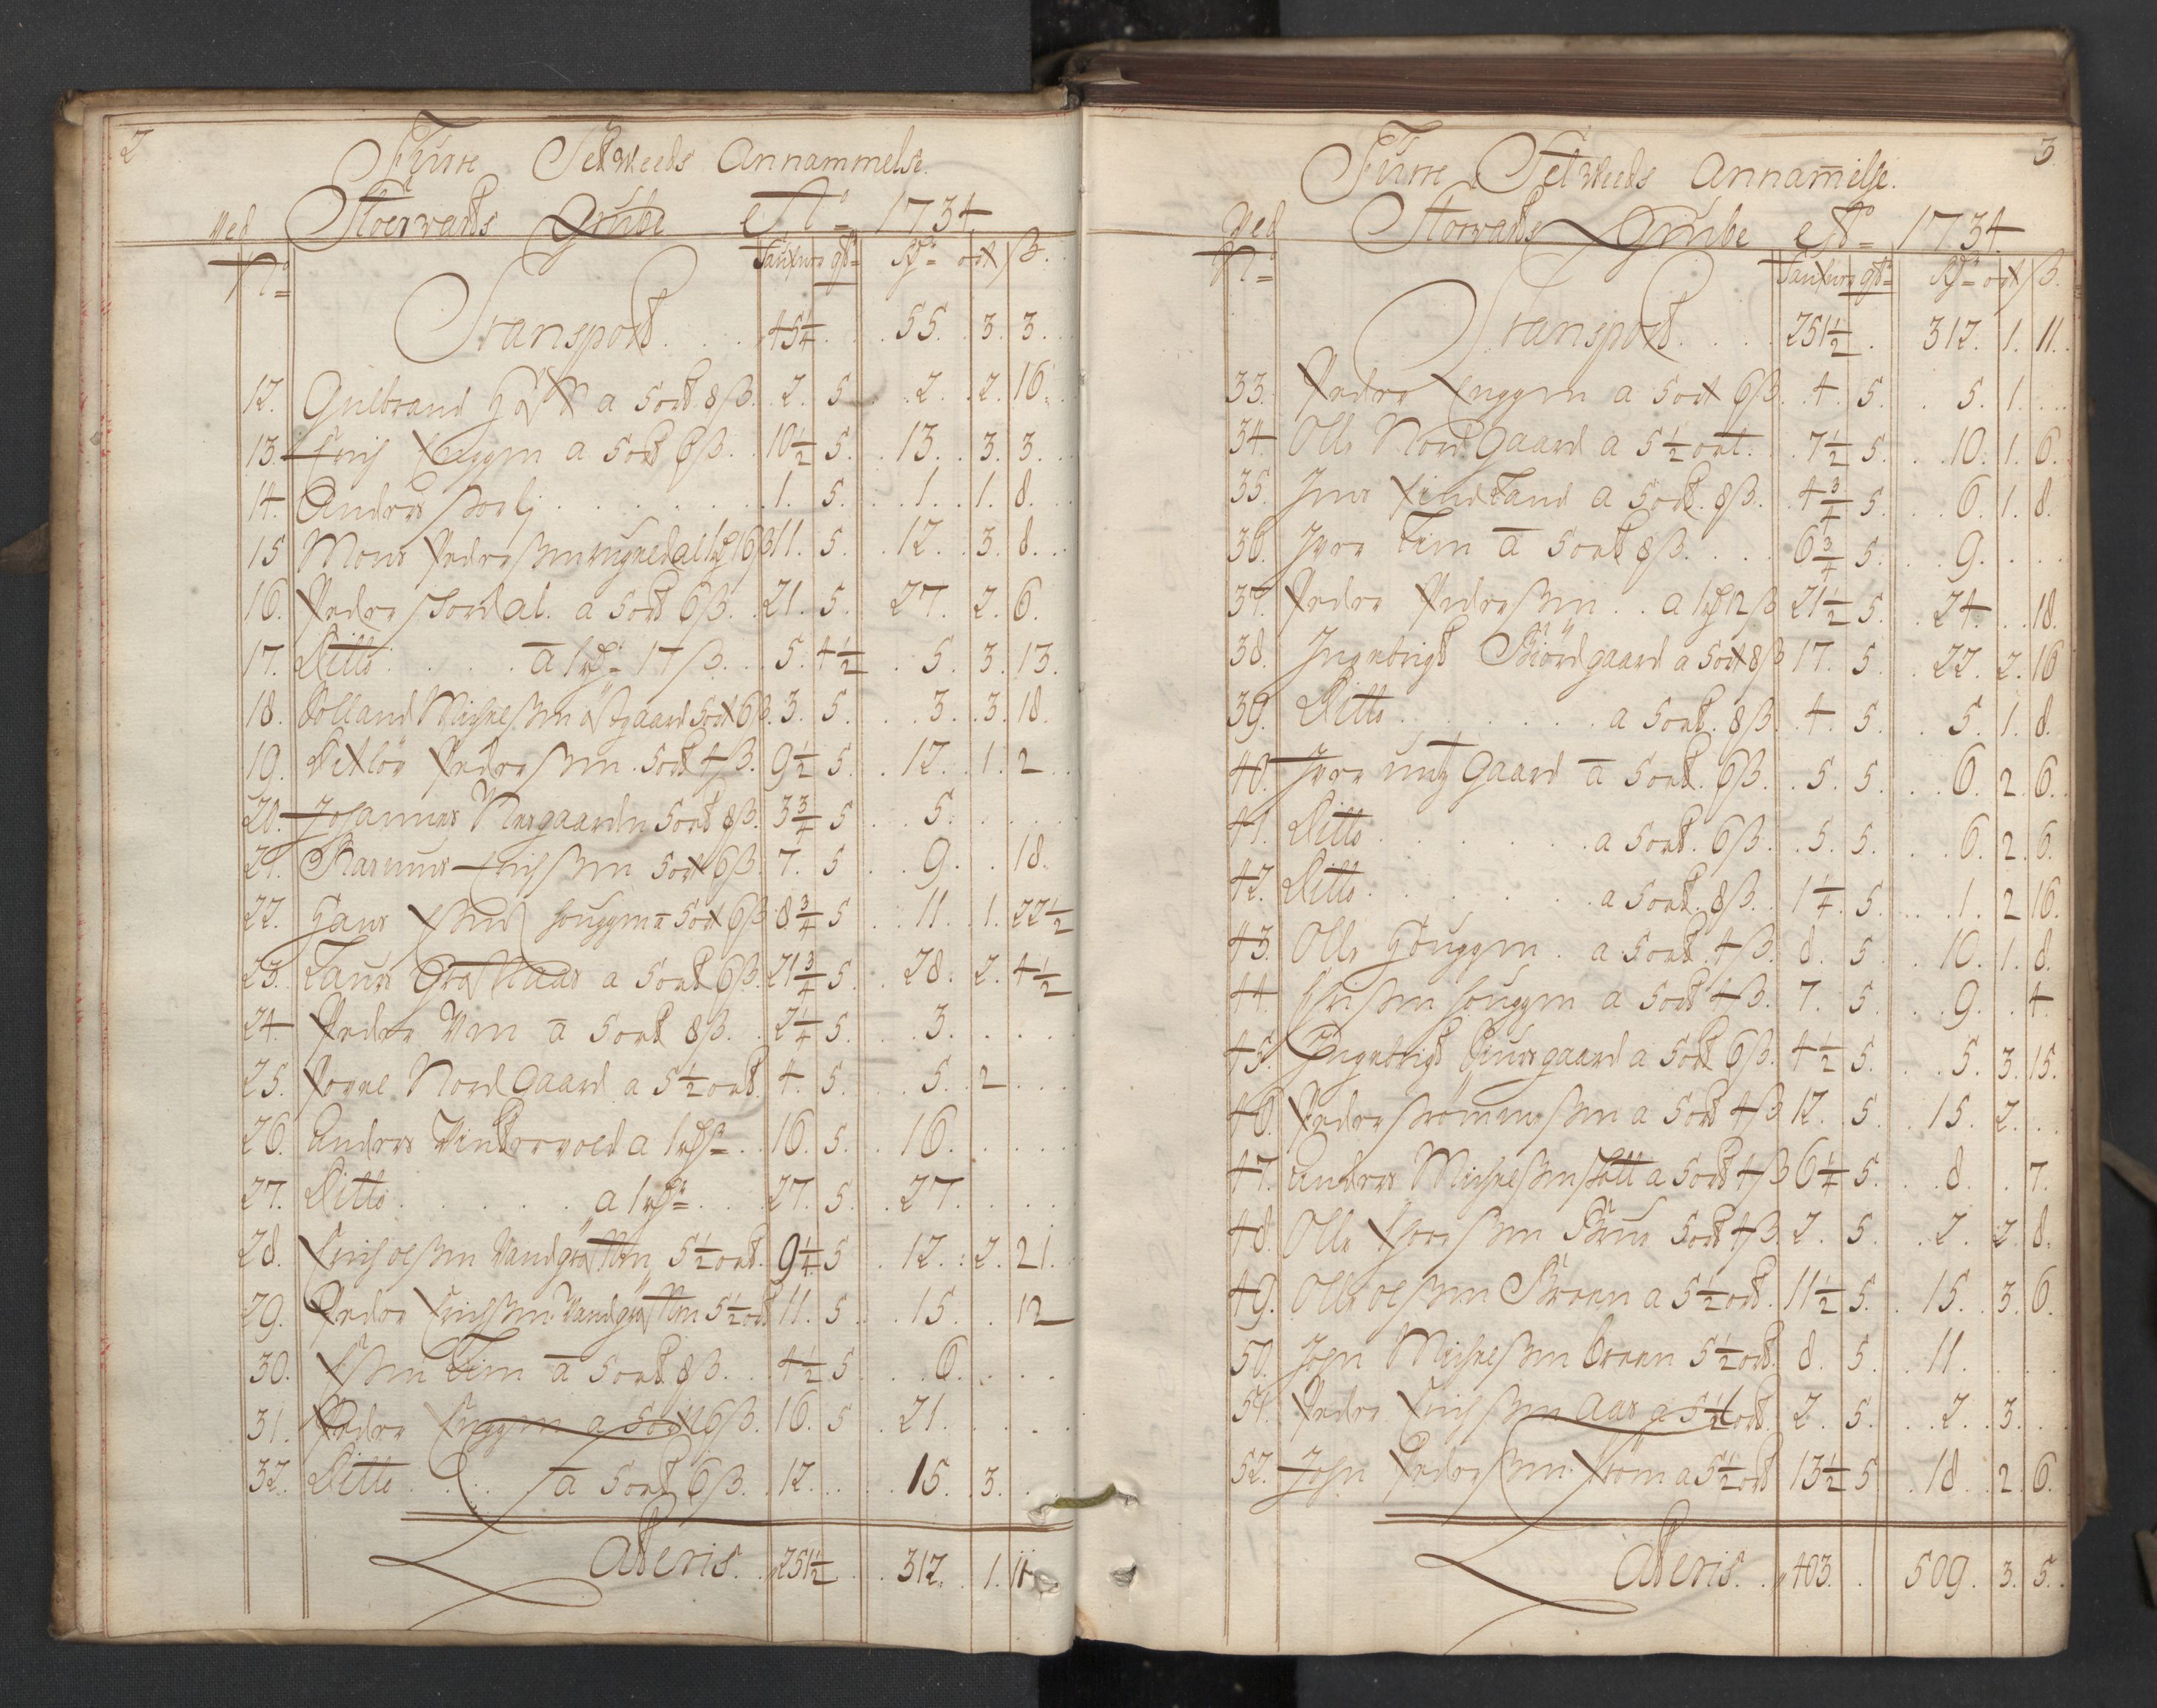 2
Furre Setweeds Annammelse.
Ved Stoerwards Grube Ao 1734
No Fauner gd Rdr ort ß.
Transport . . . 45¼ . . 55. 3. 3.
12. Gulbrand a 5 ort 8 ß. 2. 5 . 2. 2. 16.
13. Erich Engzen a 5 ort 6 ß. 10½ 5. 13. 3. 3.
14. Anders . . . . 1. 5. 1. 1. 8.
15 Mons Pedersen a 1 rdr 16 ß 11. 5. 12. 3. 8.
16. Peder Stordal. a 5 ort 6 ß. 21. 5. 27. 2. 6.
17. Ditto . . . a 1 rdr 17 ß. 5. 4½ 5. 3. 13.
18. Rolland Michelsen 5 ort 6 ß. 3. 5. 3. 3. 18.
19. Detlöv Pedersen. 5 ort 4 ß. 9½ 5. 12. 1. 2
20. Johannes Nergaarden 5 ort 8 ß. 3¾ 5 5.
21. Rasmus Erichsen 5 ort 6 ß. 7. 5 9. . 18.
22. Hans 5 ort 6 ß 8¾ 5 11. 1. 22½
23. Laurs a 5 ort 6 ß. 21¾ 5. 28. 2. 4½
24 Peder Ven a 5 ort 8 ß. 2¼ 5. 3.
25. Povel Nordgaard a 5½ ort. 4. 5. 5. 2
26. Anders Vintervold a 1 rdr 16. 5. 16.
27. Ditto . . . a 1 rdr 27. 5. 27.
28. Erich olsen 5½ ort. 9¼ 5 12. 2. 21.
29. Peder Erichsen 5½ ort 11. 5 15. . 12
30. Esten Tim a 5 ort 8 ß. 4½ 5 6.
31. Peder Engzen a 5 ort 6 ß. 16. 5 21.
32. Ditto . . . a 5 ort 6 ß. 12. . 15. 3.
Lateris. 251½ . 312. 1. 11
3.
Furre Setweeds Annamelse.
Ved Storvards Grube Ao 1734
No Fauner gd Rdr ort ß.
Transport. . . 251½ . 312. 1. 11.
33. Peder Engzen a 5 ort 6 ß. 4. 5. 5. 1.
34 Olle Nordgaard a 5½ ort. 7½ 5. 10. 1. 6.
35. Jens a 5 ort. 8 ß. 4¾ 5 6. 1. 8.
36. Iver Tim a 5 ort 8 ß. 6¾ 5. 9.
37. Peder Pedersen . . a 1 rdr 12 ß 21½ 5. 24 . 18.
38. Ingebrigt a 5 ort 8 ß 17. 5. 22. 2. 16
39. Ditto . . . a 5 ort. 8 ß. 4. 5. 5. 1. 8.
40. Iver gaard a 5 ort. 6 ß. 5. 5. 6. 2. 6.
41. Ditto . . . a 5 ort. 6 ß. 5. 5. 6. 2. 6.
42. Ditto . . . a 5 ort. 8 ß. 1¼ 5. 1. 2 16.
43. Olle Houggen . a 5 ort. 4 ß. 8. 5 10. 1. 8.
44 houggen a 5 ort 4 ß. 7. 5. 9. . 4.
45. Ingebrigt gaard a 5 ort 6 ß. 4½ 5. 5. 3. 15.
46. Peder a 5 ort 4 ß 12. 5. 15. 2.
47. Anders Michelsen a 5 ort 4 ß 6¼ 5. 8. . 7.
48. Olle 5 ort 4 ß 2. 5. 2. 2. 8.
49. Olle olsen a 5½ ort. 11½ 5. 15. 3. 6.
50. John Michelsen 5½ ort. 8. 5. 11.
51. Peder Erichsen Aas a 5½ ort. 2. 5. 2. 3.
52. John Pedersen a 5½ ort 13½ 5 18. 2. 6.
Lateris. . 403. . 509. 3. 5.